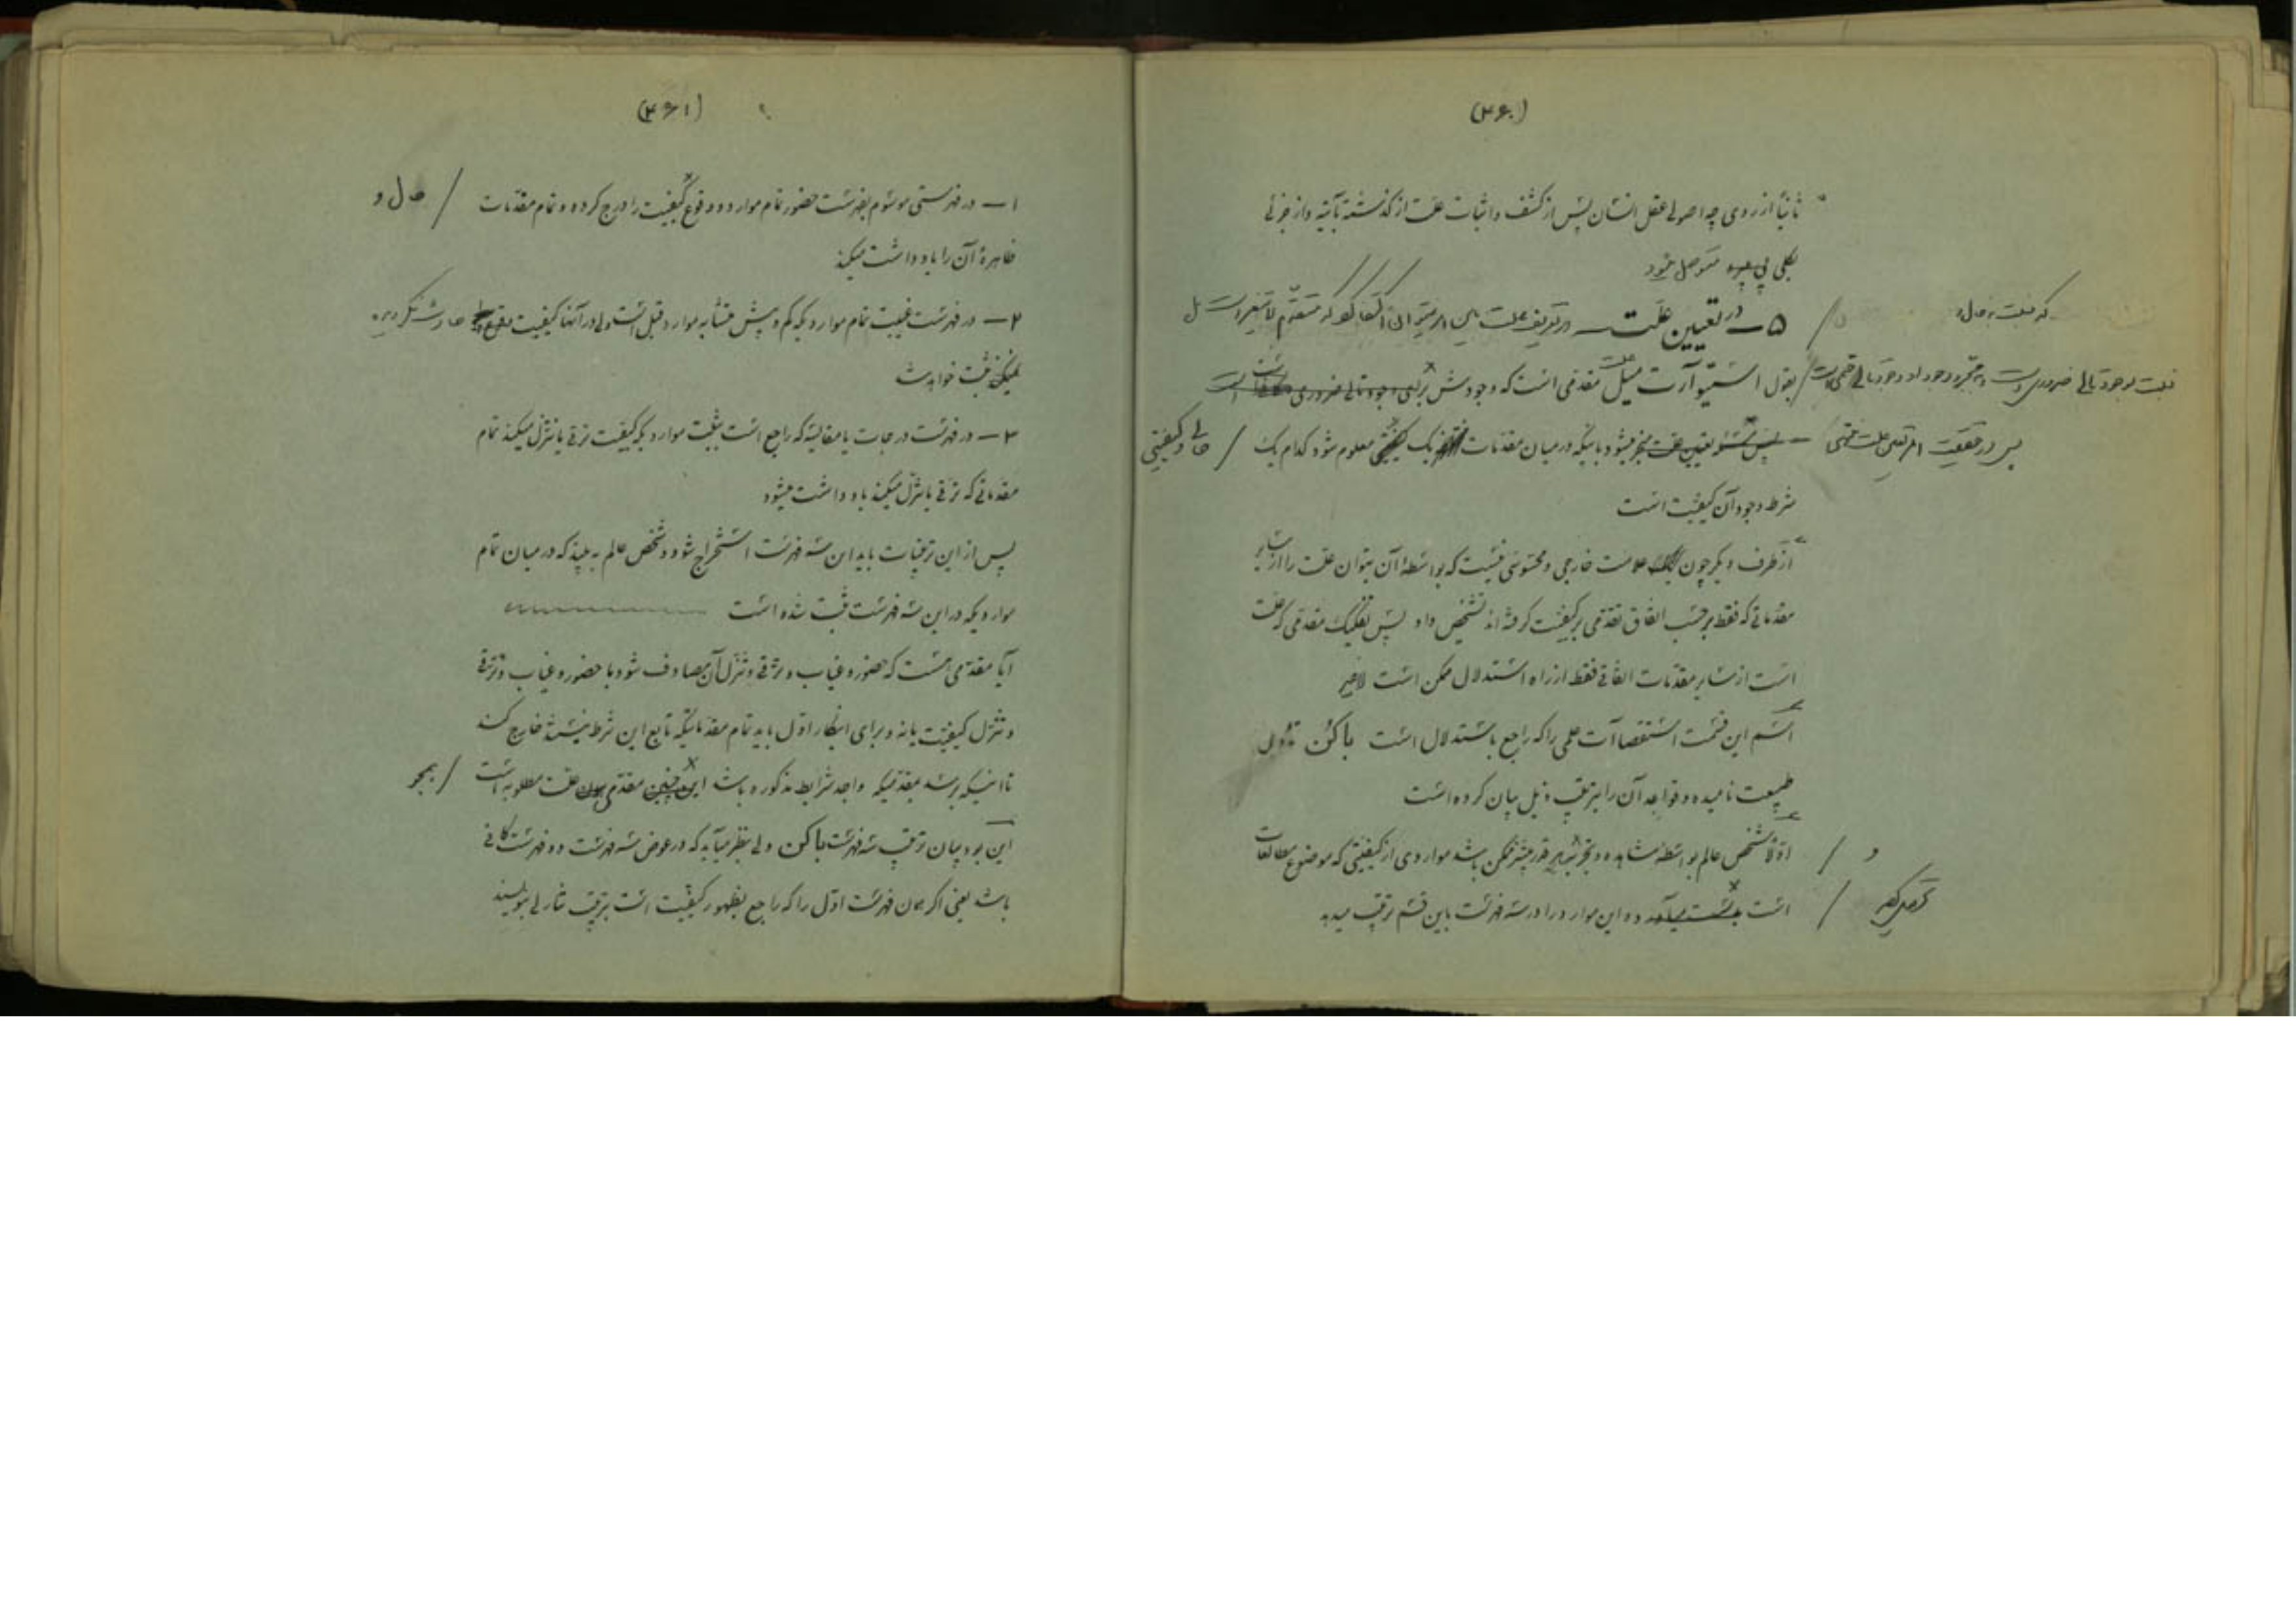 (۳۶۰)
ثانیاً از روی چه اصولی عقل انسان پس از کشف و اثبات علت از گذشته بآتیه و از جزئی
بکلی پی میبرد متوصل میشود
۵ — در تعیین علت — در تعریف علت باین امر نمیتوان اکتفا کرد که متقدم لا یتغیر است بل
که نسبت به حال و
نسبت بوجود تالی ضروری است و بمجرد وجود او وجود تالی حتمی است / بقول استیوآرت میل علت مقدمی است که وجودش برای وجود تالی ضروری
پس در حقیقت امر تعیین علت منتهی — پس مسئله تعیین علت منجر میشود باینکه در میان مقدمات یک کیفیتی معلوم شود کدام یک / حال و کیفیتی
شرط وجود آن کیفیت است
از طرف دیگر چون یک علامت خارجی و محسوسی نیست که بواسطه آن بتوان علت را از سایر
مقدماتی که فقط برحسب اتفاق تقدمی بر کیفیت گرفته اند تشخیص داد پس تفکیک مقدمی که علت
است از سایر مقدمات اتفاقی فقط از راه استدلال ممکن است لاغیر
اسم این قسمت استقصاآت علمی را که راجع باستدلال است باکن تأویل
طبیعت نامیده و قواعد آن را بترتیب ذیل بیان کرده است
اولاً شخص عالم بواسطه مشاهده و تجربه هر قدر بیشتر ممکن باشد مواردی از کیفیتی که موضوع مطالعات / و
است بدست میآورد و این موارد را در سه فهرست باین قسم ترتیب میدهد /
(۳۶۱)
۱ — در فهرستی موسوم بفهرست حضور تمام موارد وقوع کیفیت را درج کرده و تمام مقدمات / حال و
ظاهره آن را یادداشت میکند
۲ — در فهرست غیبت تمام مواردیکه کم و بیش متشابه موارد قبل است ولی در آنها کیفیت حادث نگردیده
ثبت خواهد شد
۳ — در فهرست درجات یا مقایسه که راجع است بثبت مواردیکه کیفیت ترقی یا تنزل میکند تمام
مقدماتی که ترقی یا تنزل میکند یادداشت میشود
پس از این ترتیبات باید این سه فهرست استخراج شود و شخص عالم به بیند که در میان تمام
مواردیکه در این سه فهرست ثبت شده است
آیا مقدمی هست که حضور و غیاب و ترقی و تنزل آن مصادف شود با حضور و غیاب و ترقی
و تنزل کیفیت یا نه و برای اینکار اول باید تمام مقدماتیکه تابع این شرط نیستند خارج کند
تا اینکه برسد بمقدمیکه واجد شرایط مذکوره باشد این چنین مقدمی همان علت مطلوبه است /
این بود بیان ترتیب سه فهرست باکن ولی بنظر میآید که در عوض سه فهرست دو فهرست کافی
باشد یعنی اگر همان فهرست اول را که راجع بظهور کیفیت است بترتیب تنازلی بنویسند